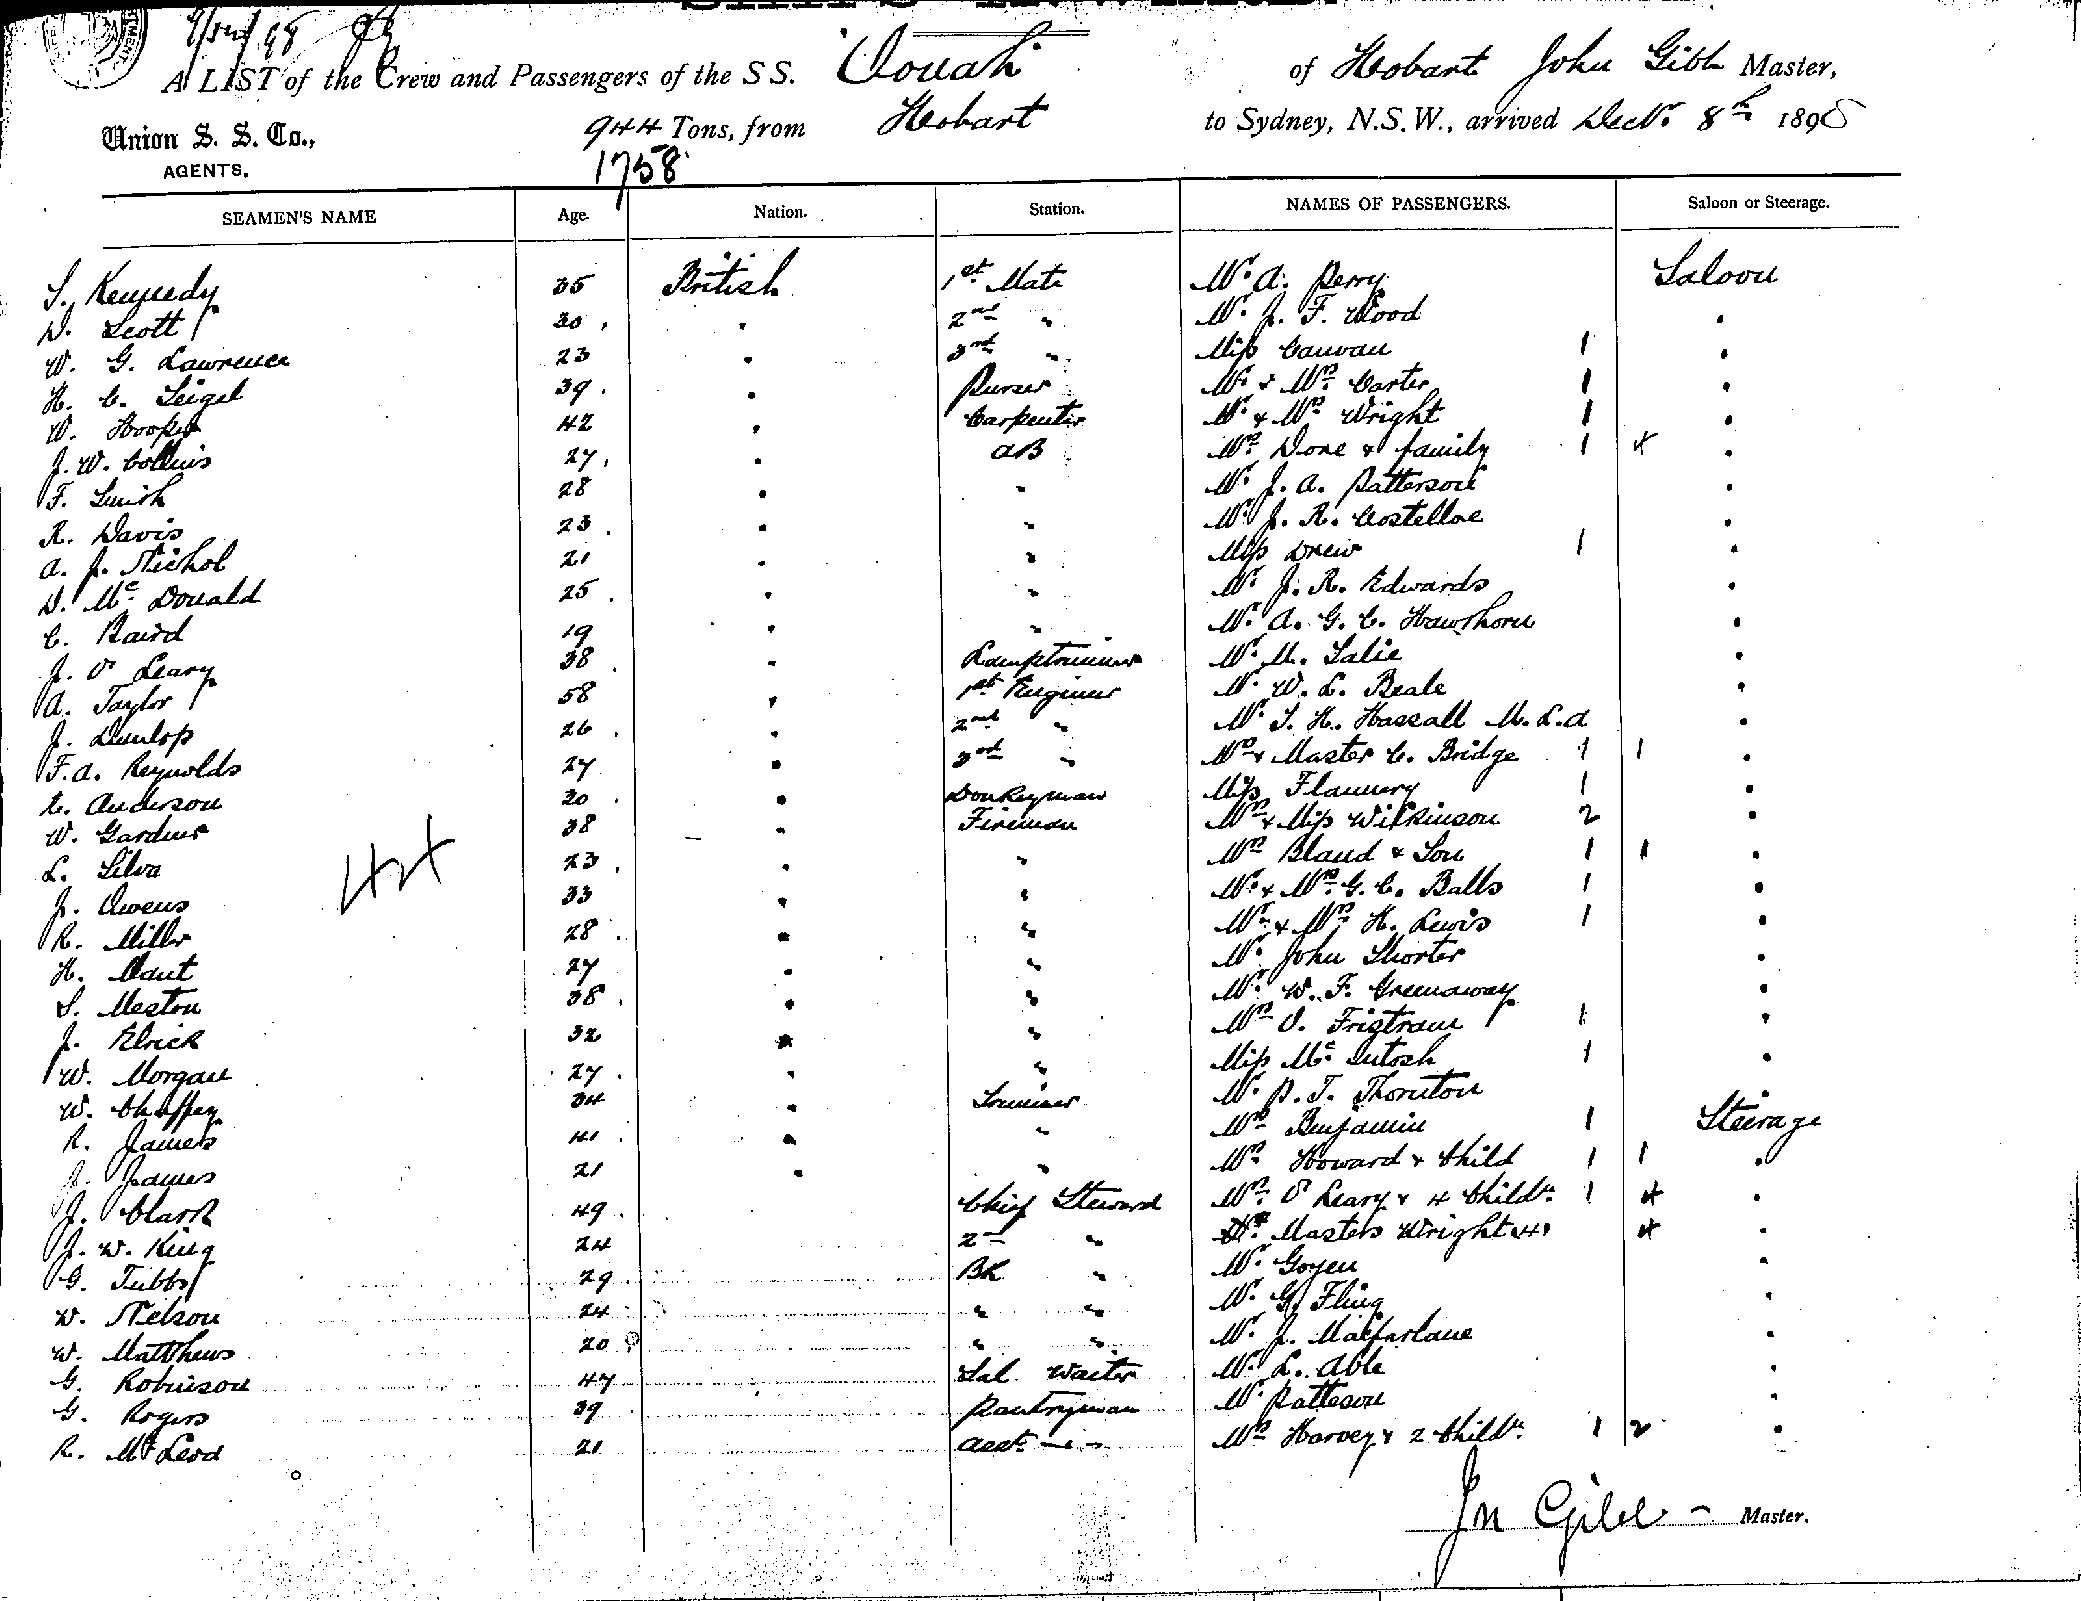 A LIST of the Crew and Passengers of the S S. Oonah of Hobart John Gibb Master,
Union S. S. Co., 944 Tons, from Hobart to Sydney, N.S.W., arrived Decr. 8th 1898
AGENTS. 1758
SEAMEN'S NAME Age. Nation. Station. NAMES OF PASSENGERS. Saloon or Steerage.
S. Kennedy 35 British 1st Mate Mr. A. Perry Saloon
D. Scott 30 " 2nd " Mr. J. F. Wood "
W. G. Lawrence 23 " 3rd " Miss Canvan 1 "
H. C. Seigel 39 " Purser Mr. & Mrs. Carter 1 "
W. Hooper 42 " Carpenter Mr. & Mrs Wright 1 "
J. W. Collins 27 " AB Mrs Dove & family 1 4 "
F. Smith 28 " " Mr. J. A. Patterson "
R. Davis 23 " " Mr. J. R. Costelloe "
A. J. Nichol 21 " " Miss Drew 1 "
D. Mc Donald 25 " " Mr. J. R. Edwards "
C. Baird 19 " " Mr. A. G. C. Hawthorn "
J. O'Leary 38 " Lamptrimmer Mr. M. Salie "
A. Taylor 58 " 1st Engineer Mr. W. L. Beale "
J. Dunlop 26 " 2nd " Mr. T. H. Hassall M.L.A "
F. A. Reynolds 27 " 3rd " Mrs & Master C. Bridge 1 1 "
C. Anderson 30 " Donkeyman Miss Flannery 1 "
W. Gardner 38 " Fireman Mrs & Miss Wilkinson 2 "
L. Silva 23 " " Mrs Bland & Son 1 1 "
J. Owens 33 " " Mr. & Mrs. G. C. Balls 1 "
R. Miller 28 " " Mr. & Mrs H. Lewis 1 "
H. Mant 27 " " Mr. John Shorter "
S. Meston 38 " " Mr. W. F. Greenaway "
J. Elrick 32 " " Mrs O. Tristram 1 "
W. Morgan 27 " " Miss Mc Intosh 1 "
W. Chaffey 34 " Trimmer Mr. P. T. Thornton "
R. James 41 " " Mrs Benjamin 1 Steerage
J. James 21 " " Mrs Howard & Child 1 1 "
J. Clark 49 Chief Steward Mrs. O'Leary & 4 Childn. 1 4 "
J. W. King 24 2nd " Masters Wright (4) 4 "
G. Tubbs 29 BR " Mr. Goyen "
W. Nelson 24 " " Mr. G. Fling "
W. Matthews 20 " " Mr. J. Macfarlane "
G. Robinson 47 Sal Waiter Mr. L. Able "
G. Rogers 39 Pantryman Mr. Patteson "
R. McLeod 21 Asst. " Mrs Harvey & 2 Childn. 1 2 "
44
Jn Gibb Master.